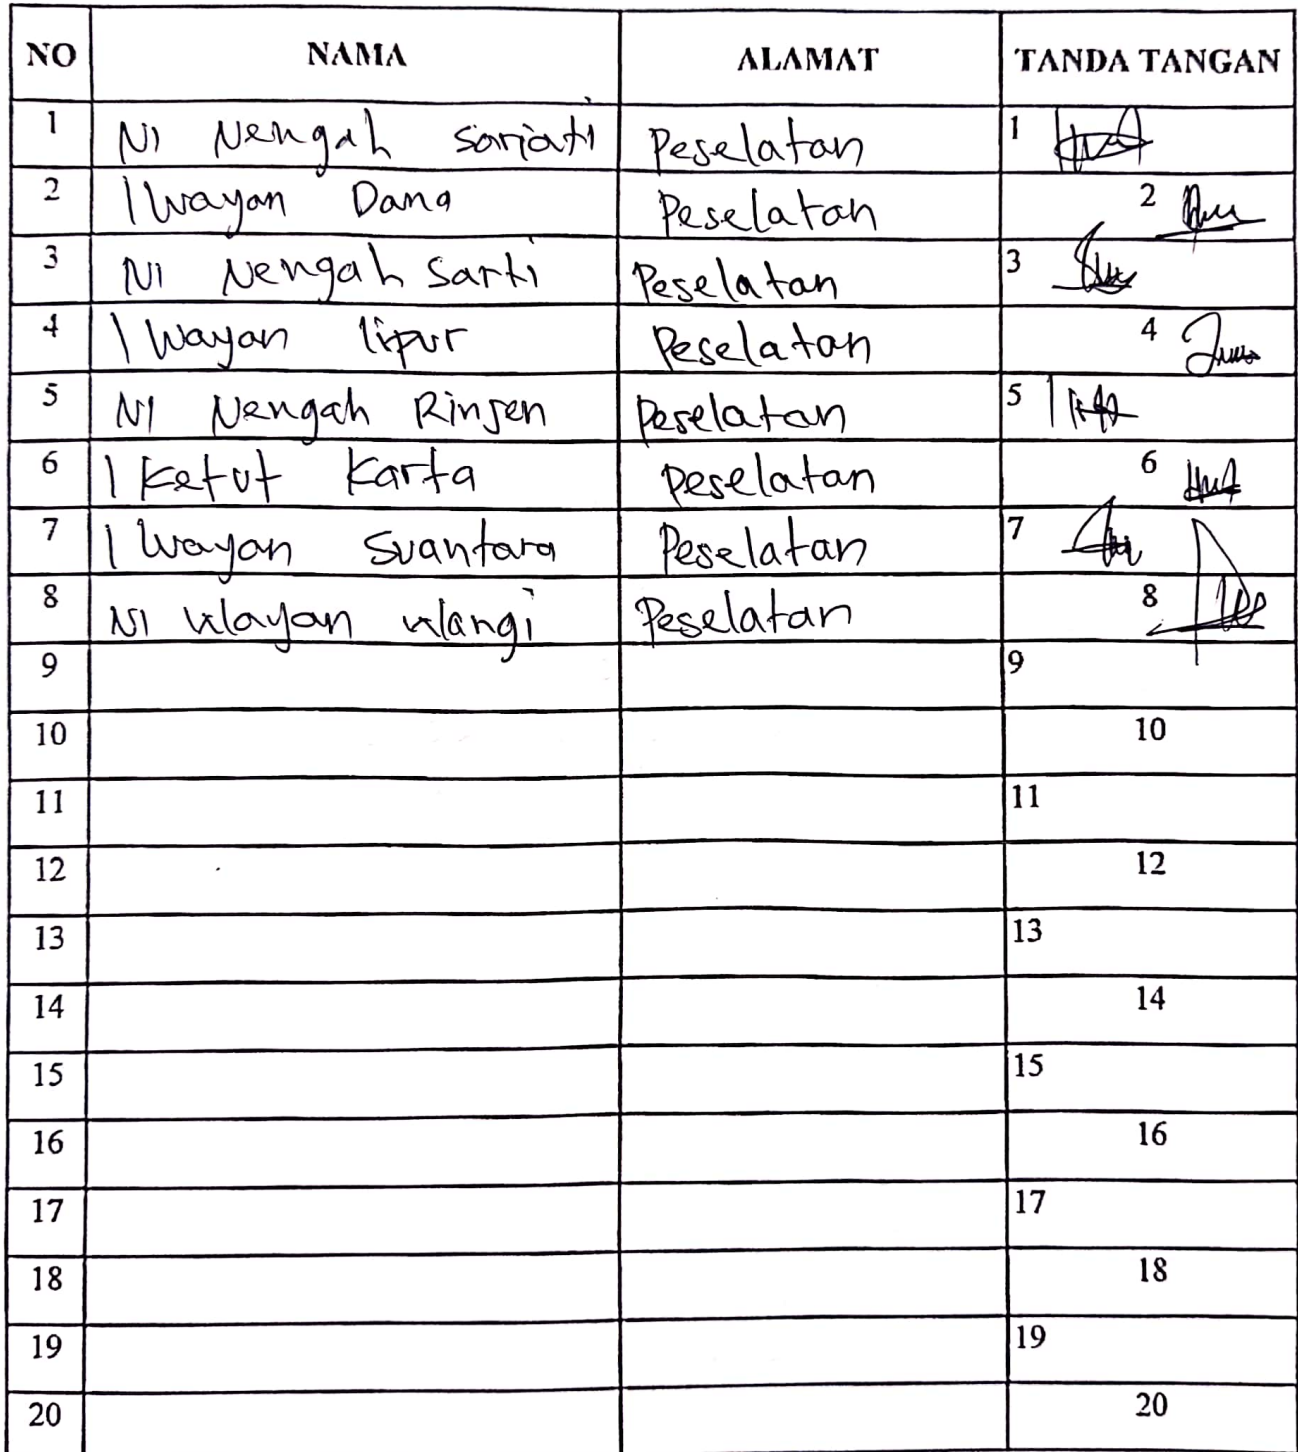 NO NAMA ALAMAT TANDA TANGAN
1 NI Nengah Sariati Peselatan 1
2 I Wayan Dana Peselatan 2
3 NI Nengah Sarti Peselatan 3
4 I Wayan lipur Peselatan 4
5 NI Nengah Rinsen Peselatan 5
6 I Ketut Karta Peselatan 6
7 I Wayan Suantara Peselatan 7
8 NI Wayan Wangi Peselatan 8
9 9
10 10
11 11
12 12
13 13
14 14
15 15
16 16
17 17
18 18
19 19
20 20